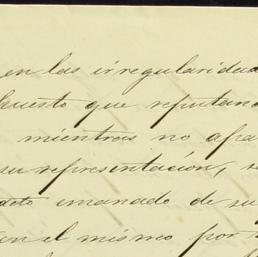 en las irregularidad
puesto que reputand
mientras no apa
su representación, s
acto emanado de su
en el mismo por